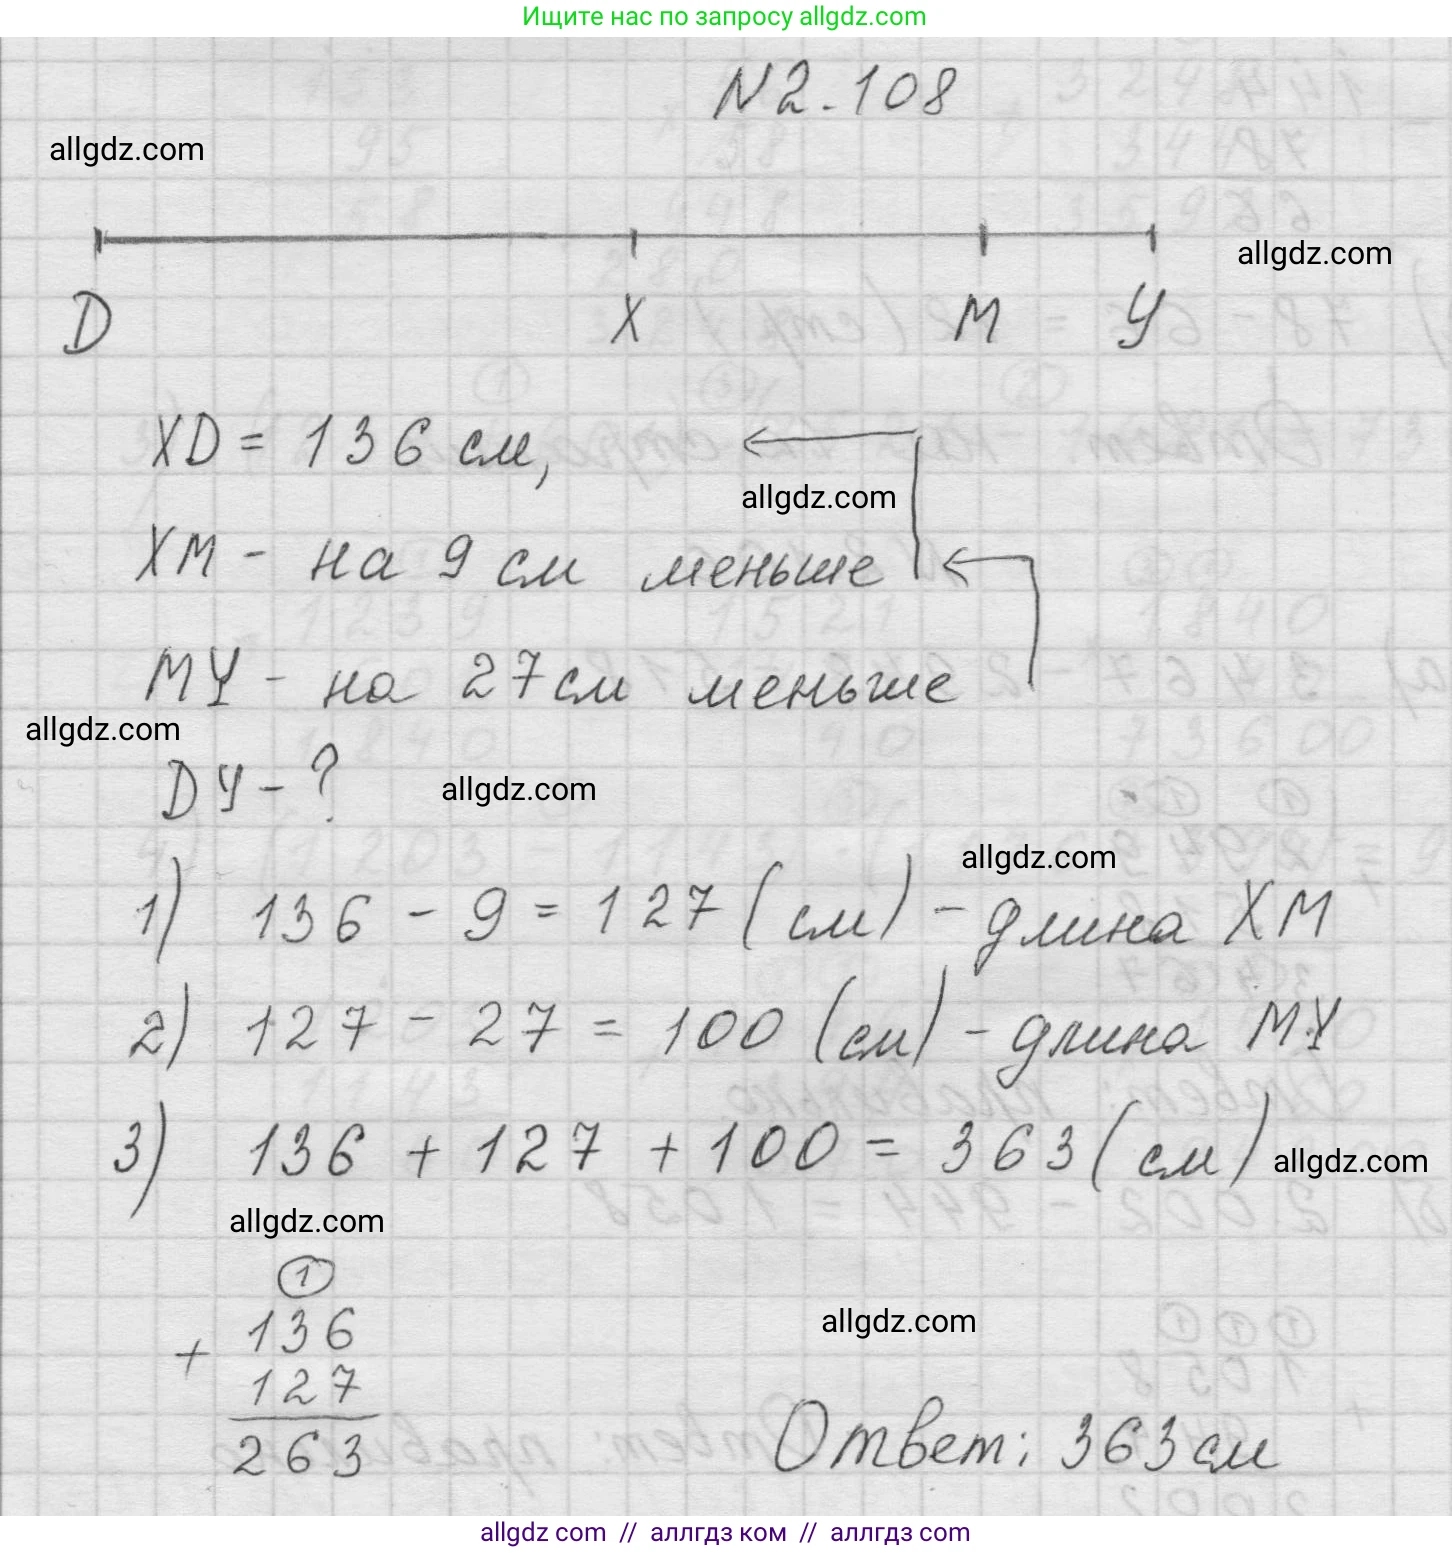 Ищите нас по запросу allgdz.com
N2.108
allgdz.com
allgdz.com
D X M У
XD = 136 см,
allgdz.com
XM - на 9 см меньше
MY - на 27 см меньше
allgdz.com
DY - ?
allgdz.com
allgdz.com
1) 136 - 9 = 127 (см) - длина XM
2) 127 - 27 = 100 (см) - длина MY
3) 136 + 127 + 100 = 363 (см)
allgdz.com
allgdz.com
1
136
+
127
263
allgdz.com
Ответ: 363 см
allgdz.com // аллгдз ком // аллгдз.com